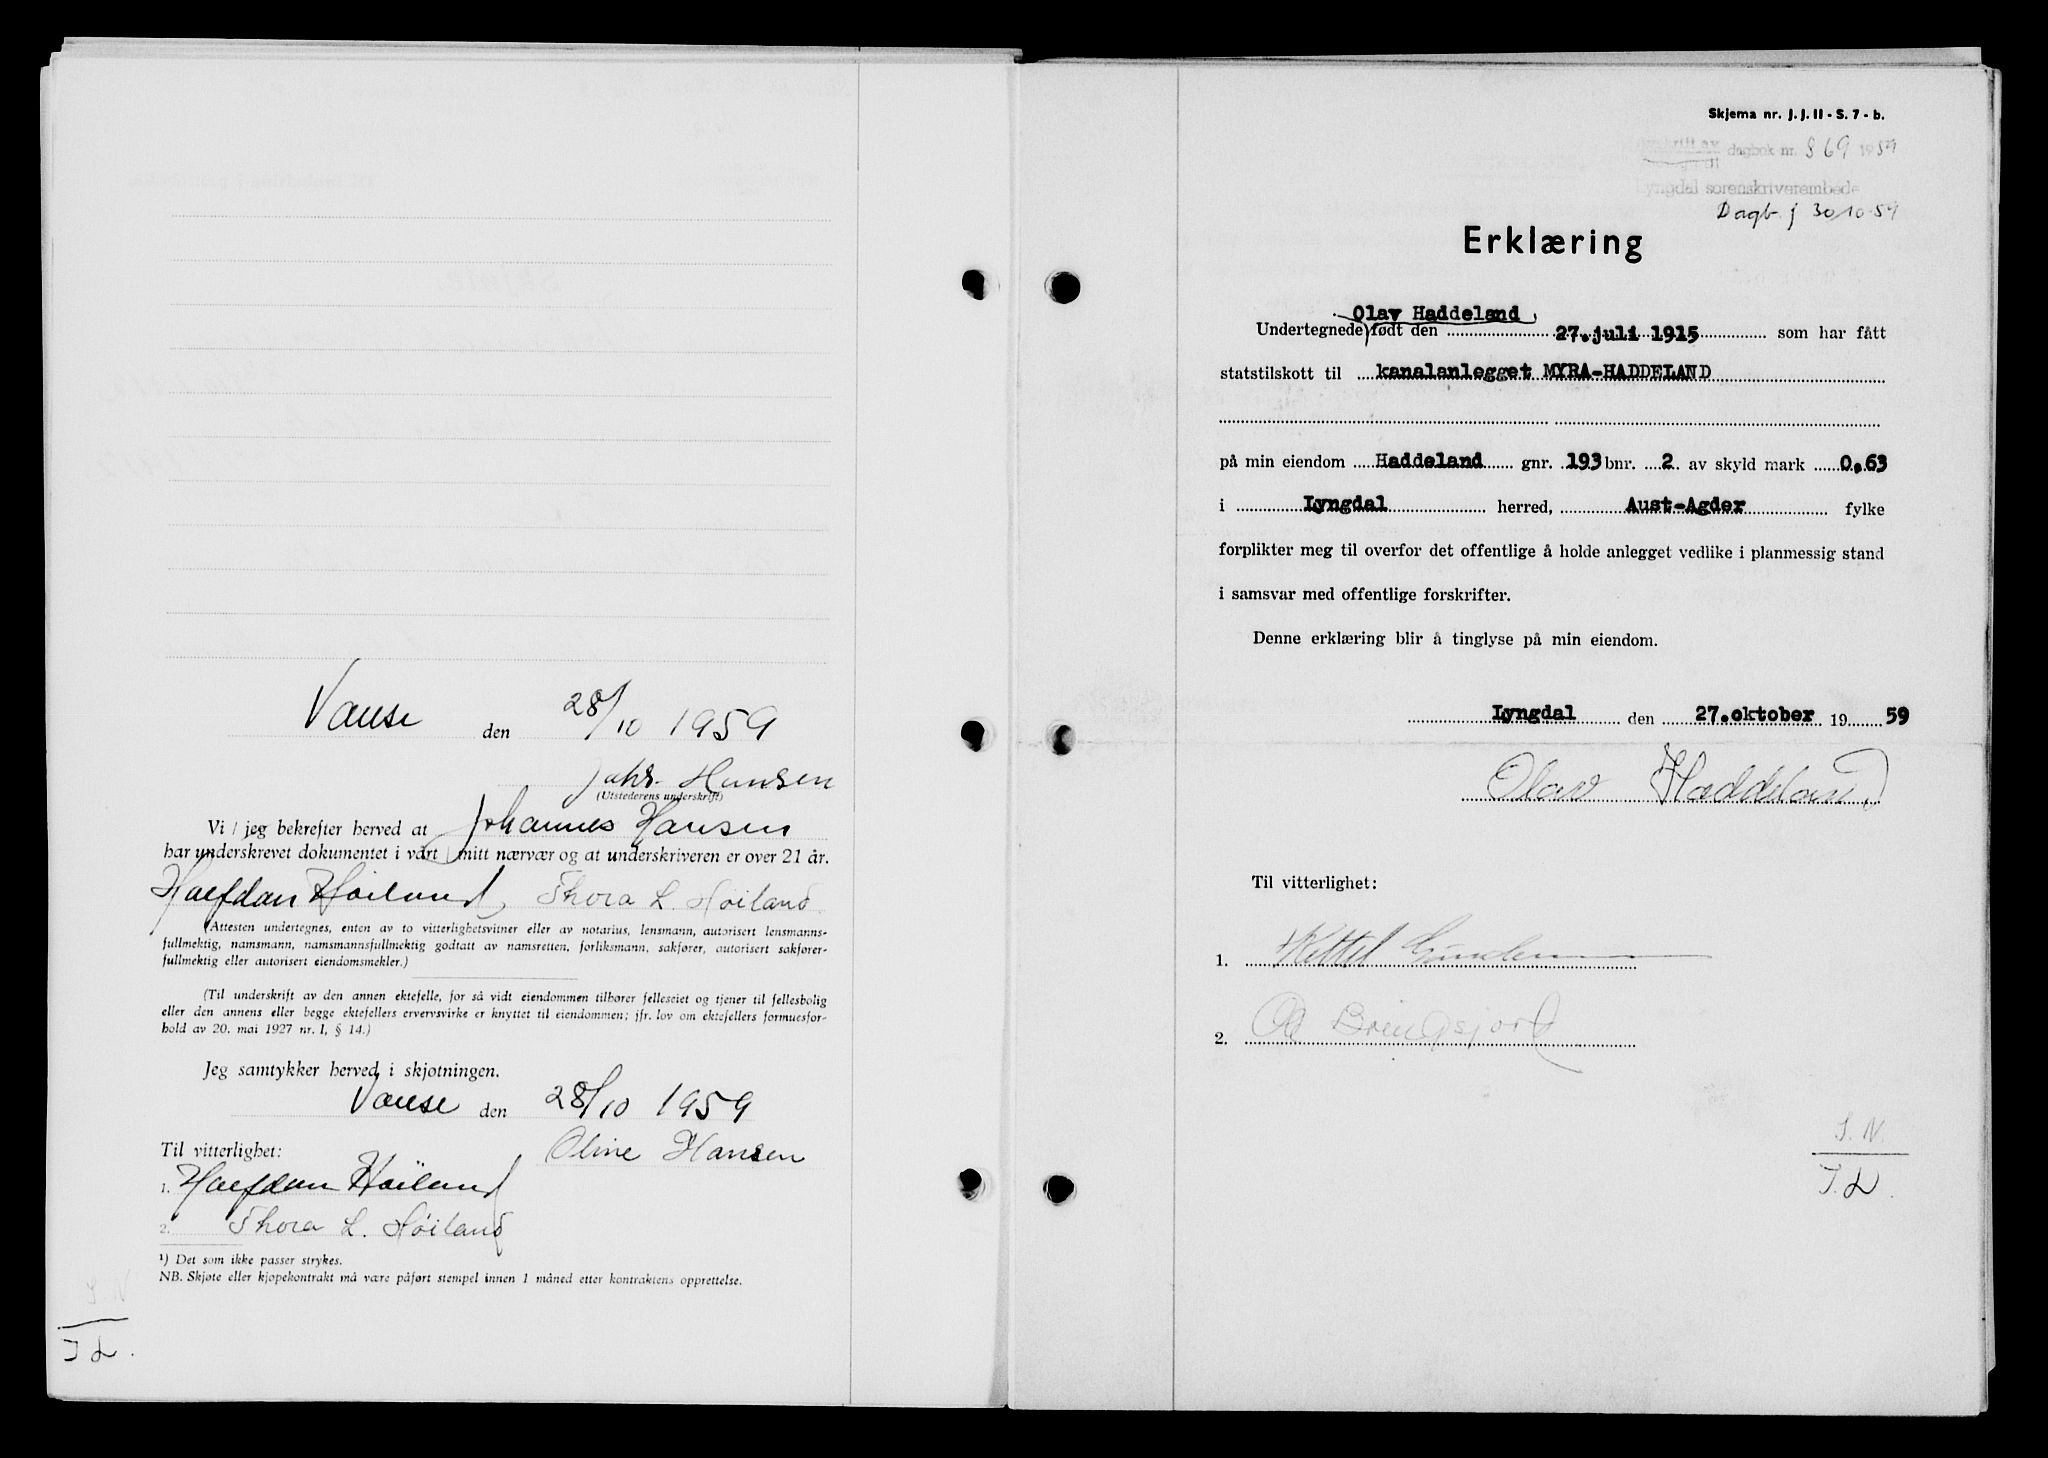 Vanse den 28/10 1959
Johs. Hansen
(Utstederens underskrift)
Vi / jeg bekrefter herved at Johannes Hansen
har underskrevet dokumentet i vårt / mitt nærvær og at underskriveren er over 21 år.
Halfdan Høiland, Thora L. Høiland
(Attesten undertegnes, enten av to vitterlighetsvitner eller av notarius, lensmann, autorisert lensmanns-
fullmektig, namsmann, namsmannsfullmektig godtatt av namsretten, forliksmann, sakfører, autorisert sakfører-
fullmektig eller autorisert eiendomsmekler.)
(Til underskrift av den annen ektefelle, for så vidt eiendommen tilhører felleseiet og tjener til fellesbolig
eller den annens eller begge ektefellers ervervsvirke er knyttet til eiendommen; jfr. lov om ektefellers formuesfor-
hold av 20. mai 1927 nr. 1, § 14.)
Jeg samtykker herved i skjøtningen.
Vanse den 28/10 1959
Til vitterlighet: Oline Hansen
1. Halfdan Høiland
2. Thora L. Høiland
¹) Det som ikke passer strykes.
NB. Skjøte eller kjøpekontrakt må være påført stempel innen 1 måned etter kontraktens opprettelse.
Skjema nr. J. J. II - S. 7 - b.
dagbok nr. 869 1959
Lyngdal sorenskriverembede
Dagb. j 30/10-59
Erklæring
Olav Haddeland
Undertegnede født den 27.juli 1915 som har fått
statstilskott til kanalanlegget MYRA-HADDELAND
på min eiendom Haddeland gnr. 193 bnr. 2 av skyld mark 0,63
i Lyngdal herred, Aust-Agder fylke
forplikter meg til overfor det offentlige å holde anlegget vedlike i planmessig stand
i samsvar med offentlige forskrifter.
Denne erklæring blir å tinglyse på min eiendom.
Lyngdal den 27.oktober 19 59
Olav Haddeland
Til vitterlighet:
1. Kittel
2.